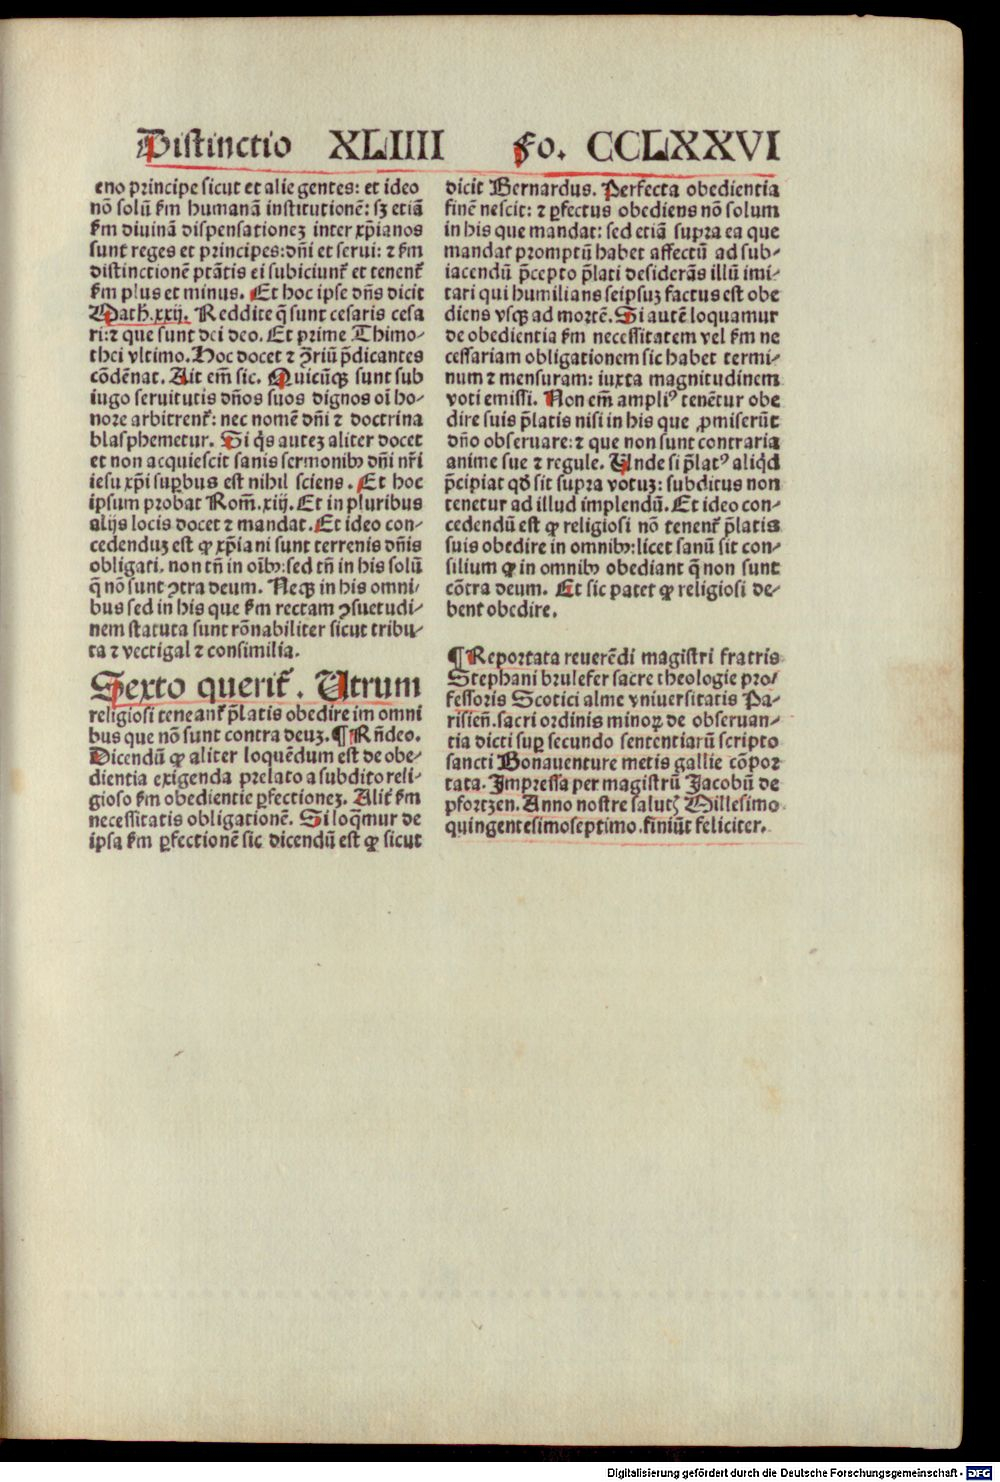 Distinctio XLIIII Fo. CCLXXVI
eno principe sicut et alie gentes: et ideo
nõ solũ ẜm humanã institutionẽ: sʒ etiã
ẜm diuinã dispensationeʒ inter xp̃ianos
sunt reges et principes: dñi et serui: ⁊ ẜm
distinctionẽ ptãtis ei subiciunt᷑ et tenent᷑
ẜm plus et minus. Et hoc ipse dñs dicit
Math. xxij. Reddite q̃ sunt cesaris cesa
ri: ⁊ que sunt dei deo. Et prime Thimo-
thei vltimo. Hoc docet ⁊ ꝯ̃riũ p̃dicantes
cõdẽnat. Ait em̃ sic. Quicũqʒ sunt sub
iugo seruitutis dños suos dignos oĩ ho-
nore arbitrent᷑: nec nomẽ dñi ⁊ doctrina
blasphemetur. Si q̃s auteʒ aliter docet
et non acquiescit sanis sermonibꝰ dñi nr̃i
iesu xp̃i suꝑbus est nihil sciens. Et hoc
ipsum probat Rom̃. xiij. Et in pluribus
alijs locis docet ⁊ mandat. Et ideo con-
cedenduʒ est ꝙ xp̃iani sunt terrenis dñis
obligati. non tñ in oĩbꝰ: sed tñ in his solũ
q̃ nõ sunt ꝯtra deum. Neqʒ in his omni-
bus sed in his que ẜm rectam ꝯsuetudi-
nem statuta sunt rõnabiliter sicut tribu-
ta ⁊ vectigal ⁊ consimilia.
Sexto querit᷑. Utrum
religiosi teneant᷑ p̃latis obedire im omni
bus que nõ sunt contra deuʒ. ¶ Rñdeo.
Dicendũ ꝙ aliter loquẽdum est de obe-
dientia exigenda prelato a subdito reli-
gioso ẜm obedientie ꝑfectioneʒ. Alit᷑ ẜm
necessitatis obligationẽ. Si loq̃mur de
ipsa ẜm ꝑfectionẽ sic dicendũ est ꝙ sicut
dicit Bernardus. Perfecta obedientia
finẽ nescit: ⁊ ꝑfectus obediens nõ solum
in his que mandat: sed etiã supra ea que
mandat promptũ habet affectũ ad sub-
iacendũ p̃cepto p̃lati desiderãs illũ imi-
tari qui humilians seipsuʒ factus est obe
diens vsqʒ ad mortẽ. Si autẽ loquamur
de obedientia ẜm necessitatem vel ẜm ne
cessariam obligationem sic habet termi-
num ⁊ mensuram: iuxta magnitudinem
voti emissi. Non em̃ ampliꝰ tenẽtur obe
dire suis p̃latis nisi in his que ꝓmiserũt
dño obseruare: ⁊ que non sunt contraria
anime sue ⁊ regule. Unde si p̃latꝰ aliqͥd
p̃cipiat qð sit supra votuʒ: subditus non
tenetur ad illud implendũ. Et ideo con-
cedendũ est ꝙ religiosi nõ tenent᷑ p̃latis
suis obedire in omnibꝰ: licet sanũ sit con-
silium ꝙ in omnibꝰ obediant q̃ non sunt
cõtra deum. Et sic patet ꝙ religiosi de-
bent obedire.
¶ Reportata reuerẽdi magistri fratris
Stephani brulefer sacre theologie pro-
fessoris Scotici alme vniuersitatis Pa-
risien̄. sacri ordinis minoꝝ de obseruan-
tia dicti suꝑ secundo sententiarũ scripto
sancti Bonauenture metis gallie cõpor
tata. Impressa per magistrũ Jacobũ de
pfortzen. Anno nostre salutꝭ Millesimo
quingentesimoseptimo. finiũt feliciter.
Digitalisierung gefördert durch die Deutsche Forschungsgemeinschaft - DFG